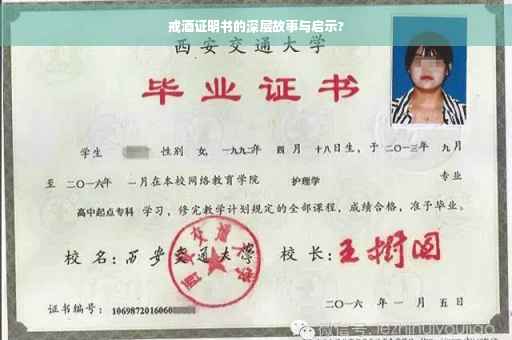 戒酒证明书的深层故事与启示?
西安交通大学
毕业证书
学生 性别 女,一九九二年 四 月 十八日生,于 二〇一三年 九月
至 二〇一六年 一月在本校网络教育学院 护理学 专业
高中起点专科 学习,修完教学计划规定的全部课程,成绩合格,准予毕业。
校 名:西安交通大学 校 长:王树国
西安交通大学
证书编号:1069872016060 二〇一六 年 一 月 五 日
微信号:jiezhihuiyoujiao